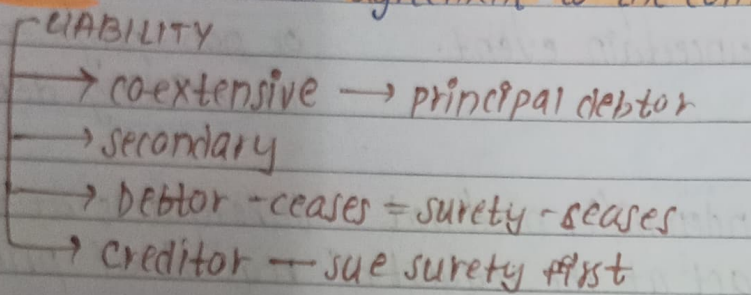 LIABILITY
→ co-extensive → principal debtor
→ secondary
→ Debtor - ceases = surety - seases
→ creditor — sue surety first